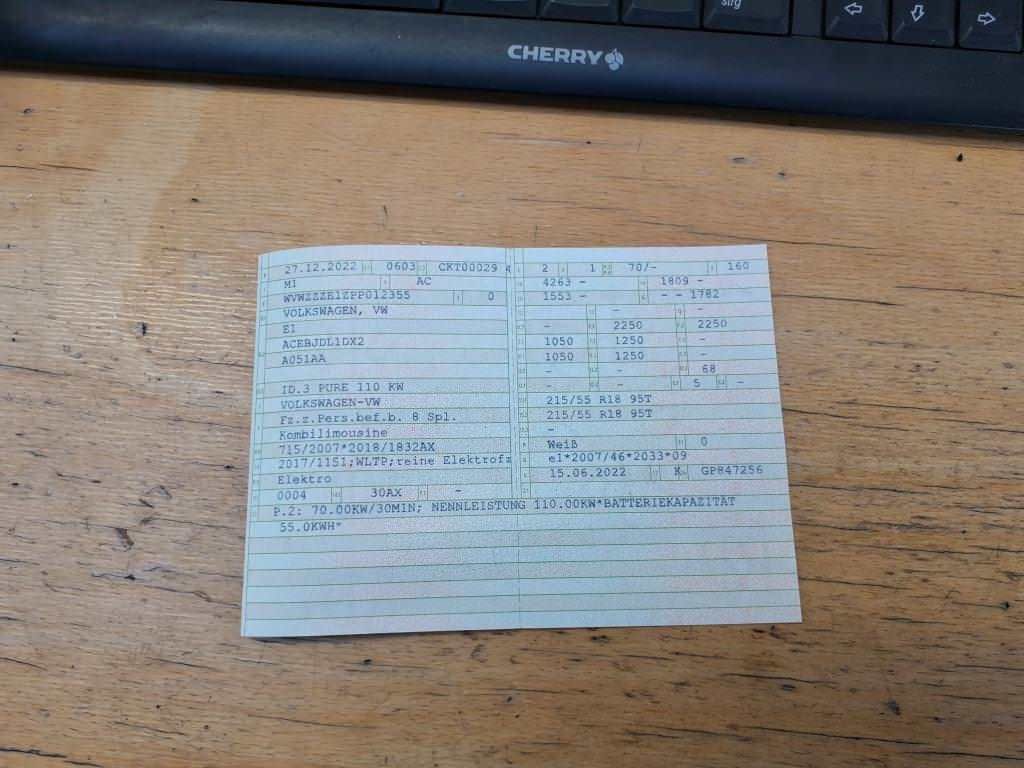 strg
CHERRY
27.12.2022 0603 CKT00029 4
M1 AC
WVWZZZE1ZPP012355 0
VOLKSWAGEN, VW
E1
ACEBJDL1DX2
A051AA
ID.3 PURE 110 KW
VOLKSWAGEN-VW
Fz.z.Pers.bef.b. 8 Spl.
Kombilimousine
715/2007*2018/1832AX
2017/1151;WLTP;reine Elektrofz
Elektro
0004 30AX -
2 1 70/- 160
4263 - 1809 -
1553 - - - 1782
- -
- 2250 2250
1050 1250 -
1050 1250 -
- - 68
- - 5 -
215/55 R18 95T
215/55 R18 95T
-
Weiß 0
e1*2007/46*2033*09
15.06.2022 K GP847256
P.2: 70.00KW/30MIN; NENNLEISTUNG 110.00KW*BATTERIEKAPAZITÄT
55.0KWH*